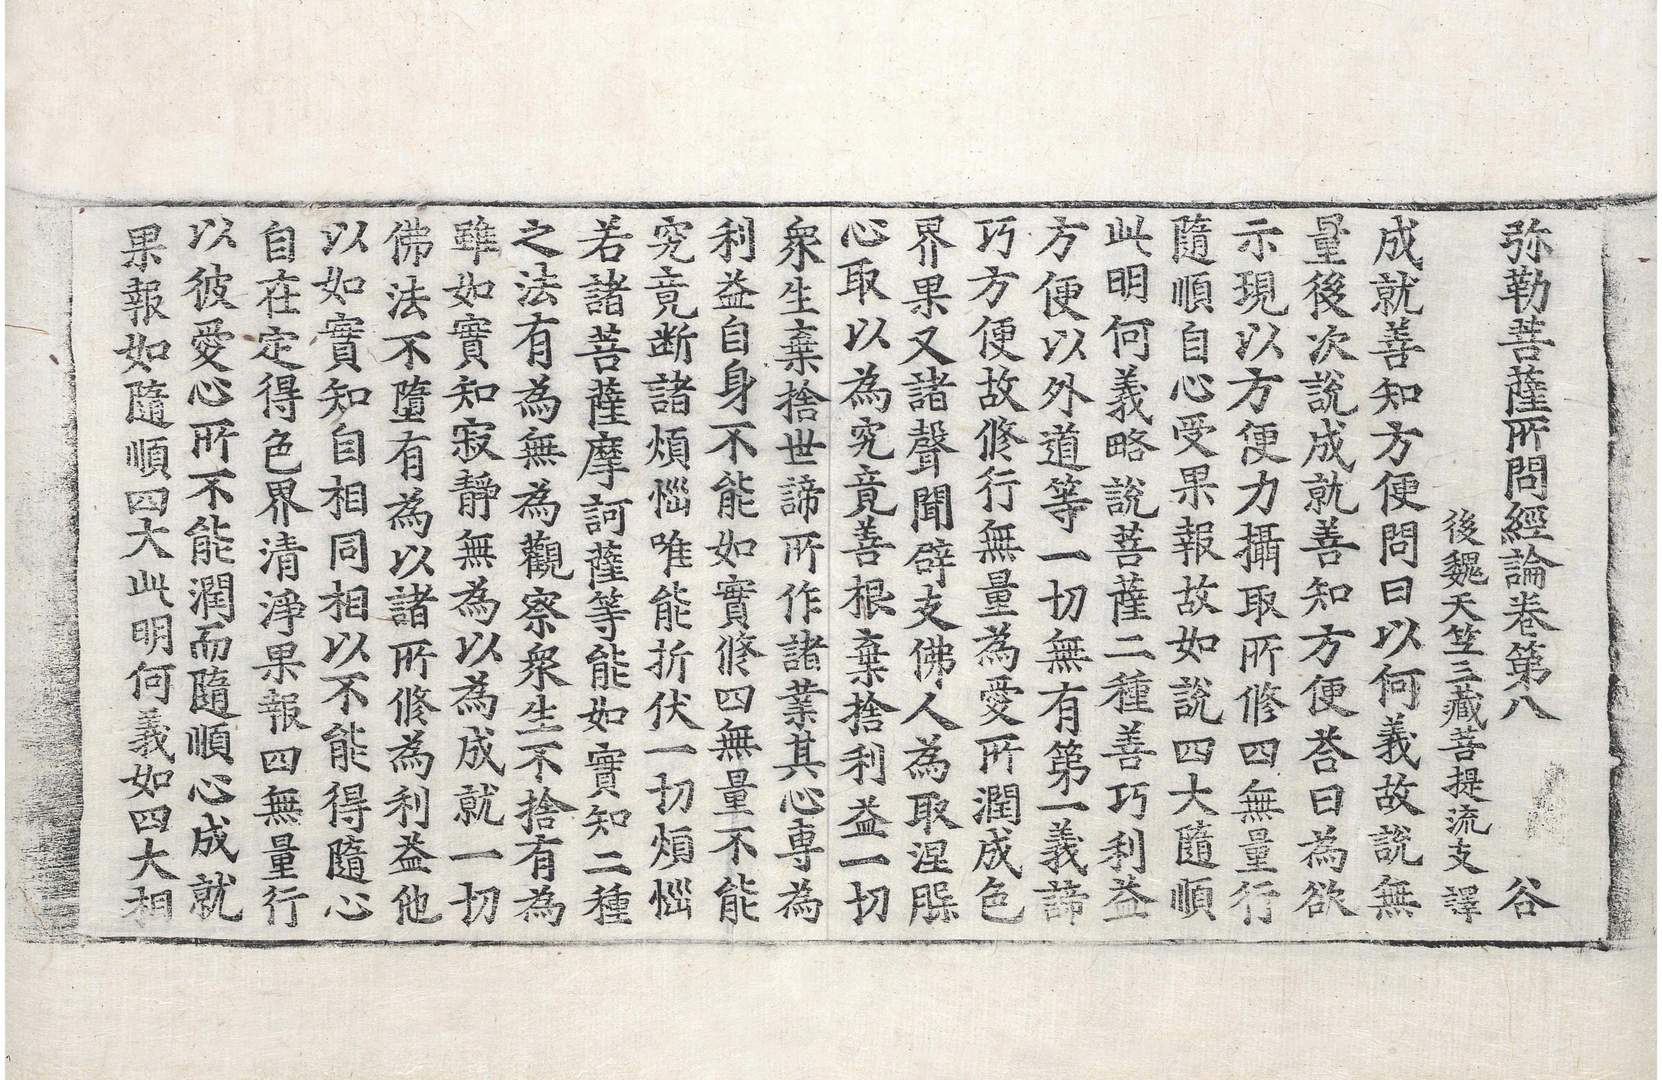 弥勒菩薩所問經論卷第八　谷
後魏天竺三藏菩提流支譯
成就善知方便問曰以何義故說無
量後次說成就善知方便荅曰為欲
示現以方便力攝取所修四無量行
隨順自心受果報故如說四大隨順
此明何義略說菩薩二種善巧利益
方便以外道等一切無有第一義諦
巧方便故修行無量為愛所潤成色
界果又諸聲聞辟支佛人為取涅槃
心取以為究竟善根棄捨利益一切
衆生棄捨世諦所作諸業其心専為
利益自身不能如實修四無量不能
究竟断諸煩惱唯能折伏一切煩惱
若諸菩薩摩訶薩等能如實知二種
之法有為無為觀察衆生不捨有為
雖如實知寂靜無為以為成就一切
佛法不墮有為以諸所修為利益他
以如實知自相同相以不能得隨心
自在定得色界清淨果報四無量行
以彼愛心所不能潤而隨順心成就
果報如隨順四大此明何義如四大相